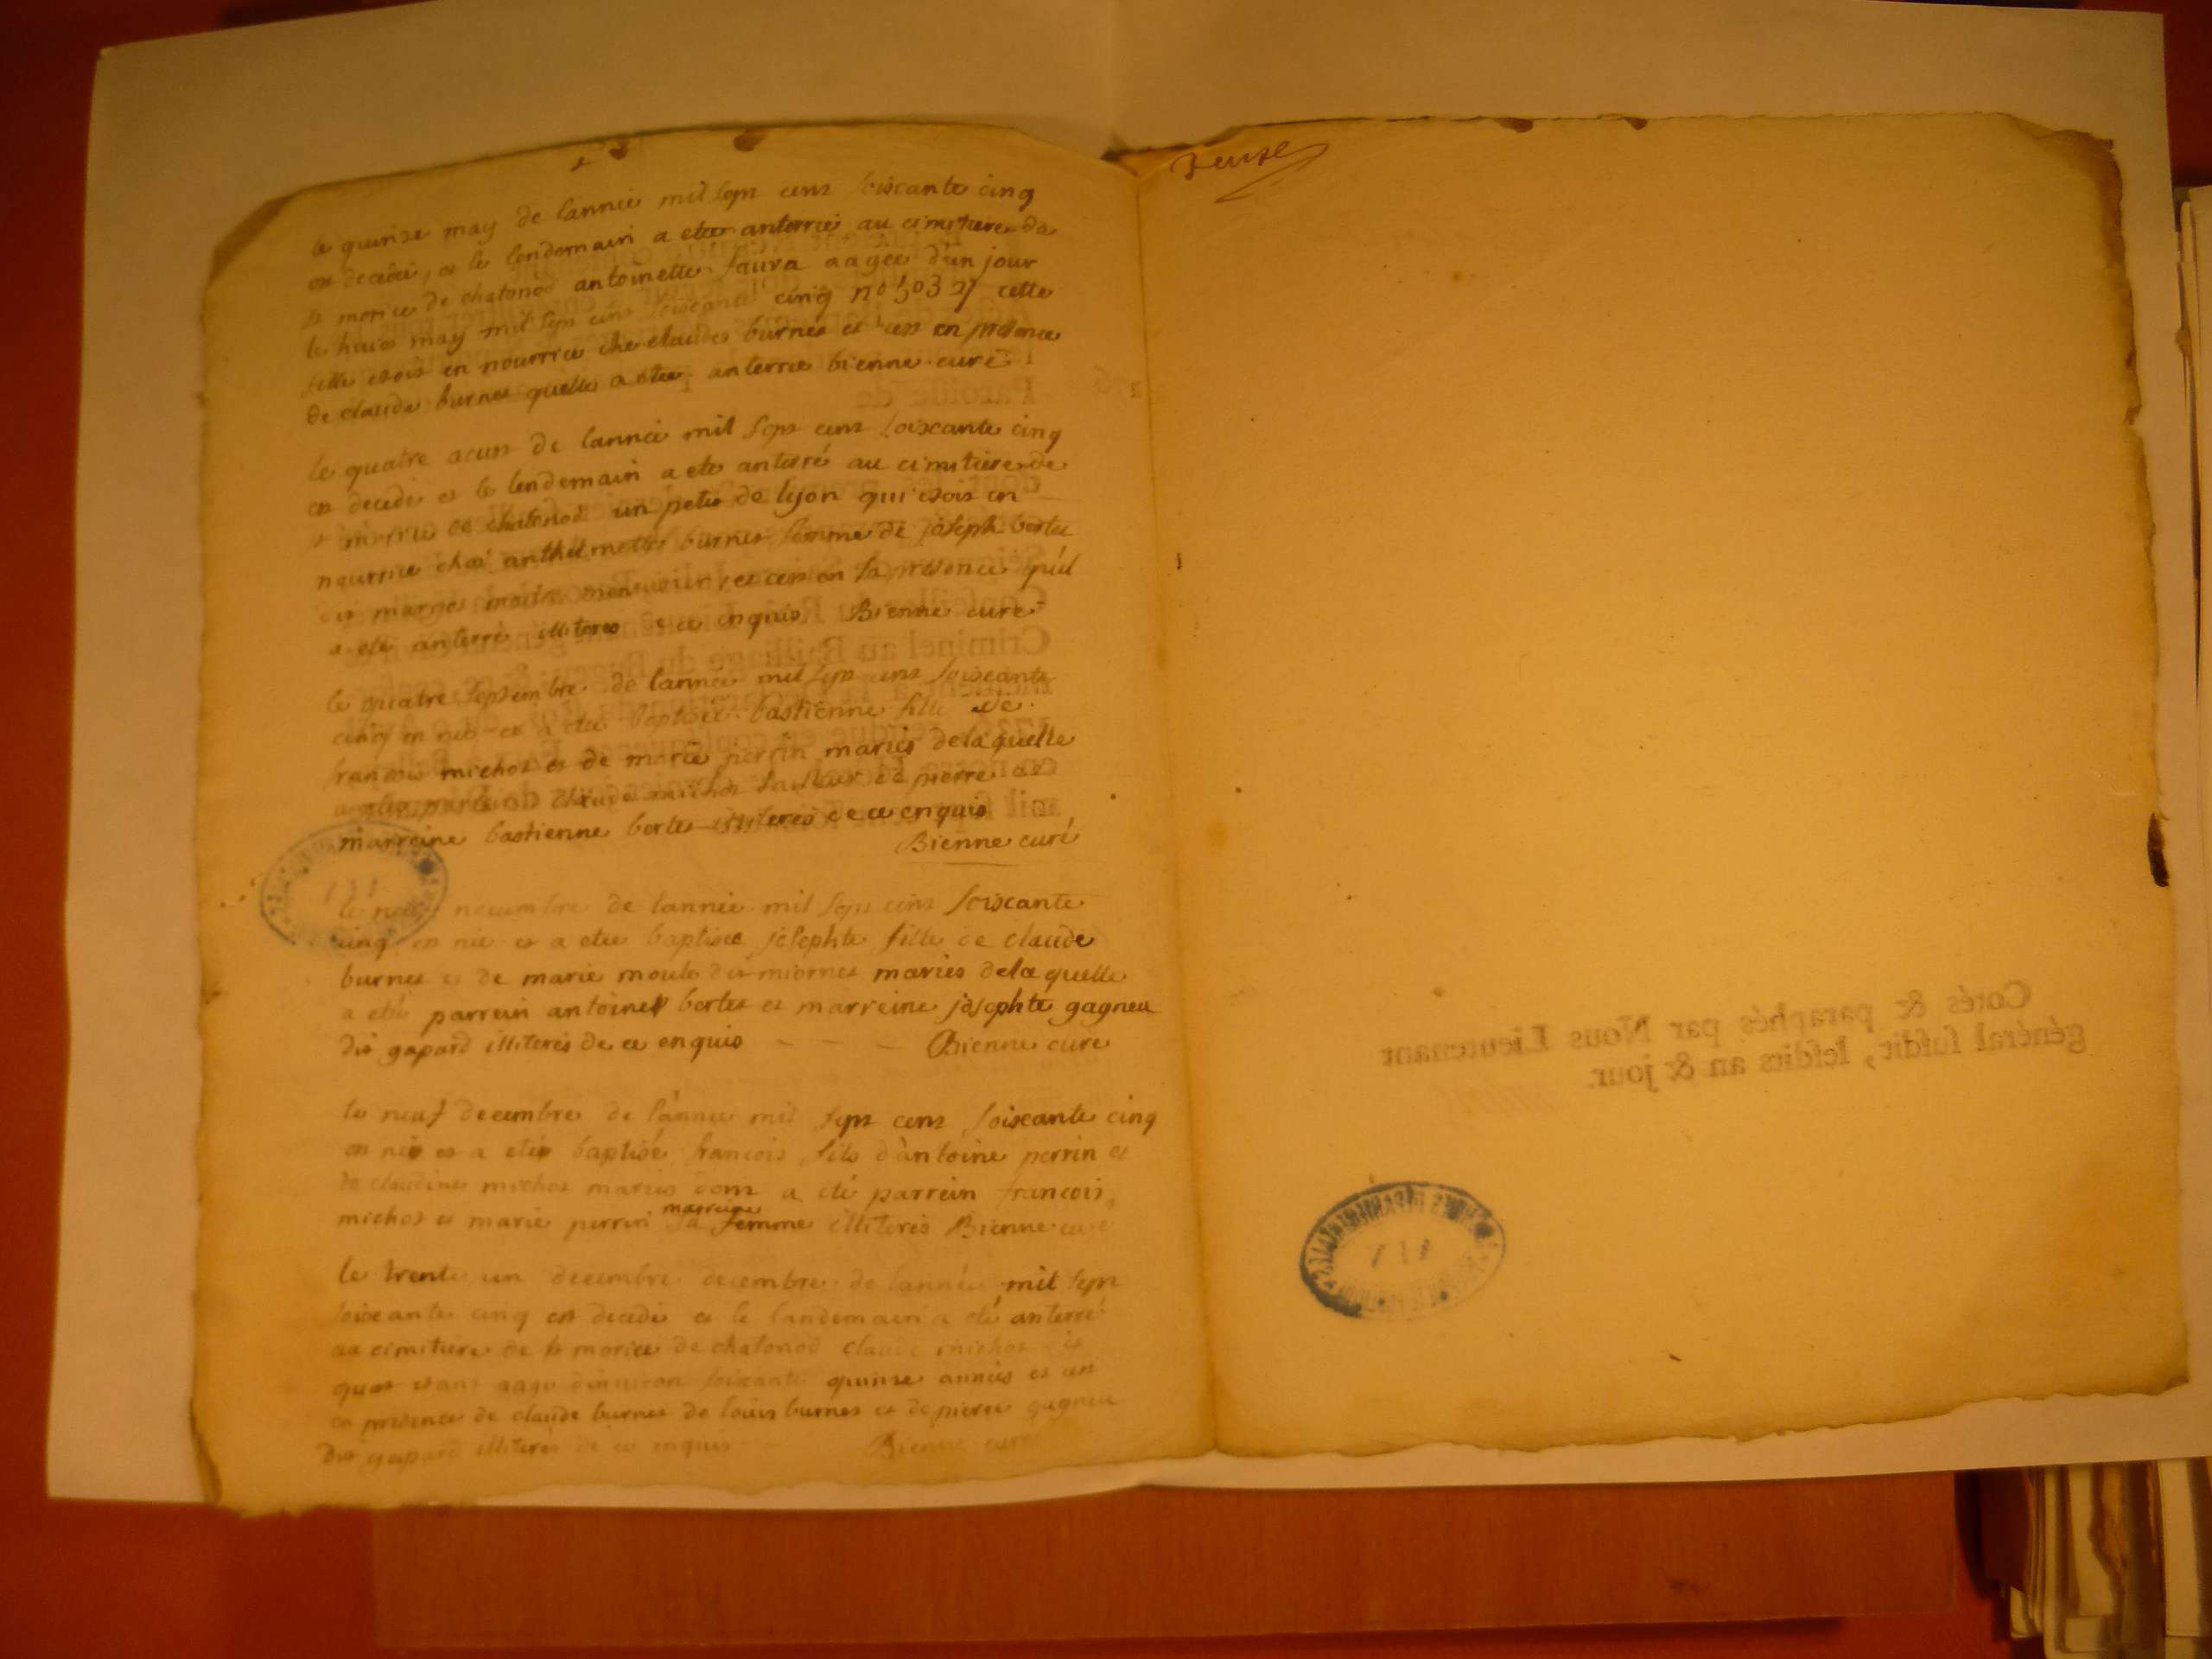 le quinze may de lannée mil sept cent soiscante cinq
est decédée, et le lendemain a etee anterrée au cimitiere de
st morice de chatonod antoinette faura aagée d'un jour
le huit may mil sept cent soiscante cinq no cette
fille etoit en nourrice che claude burnet et cest en presence
de claude burnet quelle a etee anterrée bienne curé
le quatre aout de lannée mil sept cent soixante cinq
est decede et le lendemain a ete anterré au cimitiere de
st morice de chatonod un petit de lyon qui etoit en
nourrice ches anthelmette burnet femme de joseph bertet
dit margot et cest en sa presence qu'il
a été anterré illiteres de ce enquis Bienne curé
le quatre septembre de lannée mil sept cent soiscante
cinq est née et a etee baptisée bastienne fille de
francois michot et de marie perrin mariés delaquelle
claude michot pierre
marreine bastienne bertet illiteres de ce enquis
Bienne curé
le neuf novembre de lannée mil sept cent soiscante
cinq est née et a etee baptisée josephte fille de claude
burnet et de marie moulo dit miornet mariés dela quelle
a eté parrein antoine bertet et marreine josephte gagneu
dit gapard illiterés de ce enquis Bienne curé
le neuf decembre de lannée mil sept cent soiscante cinq
est né et a etée baptisé francois fils d'antoine perrin et
de claudine michot mariés dont a été parrein francois
michot et marie perrin sa femme marreine illiterés Bienne curé
le trente un decembre decembre de lannée mil sept
soiscante cinq est decedé et le landemain a été anterré
au cimitiere de st morice de chatonod claude michot
quot etant aagé d'inuiron soixante quinze années et cest
en presence de claude burnet de louis burnet et de pierre gagneu
dit gapard illiterés de ce enquis Bienne curé
Cotés & paraphés par Nous Lieutenant
général susdit, lesdits an & jour.